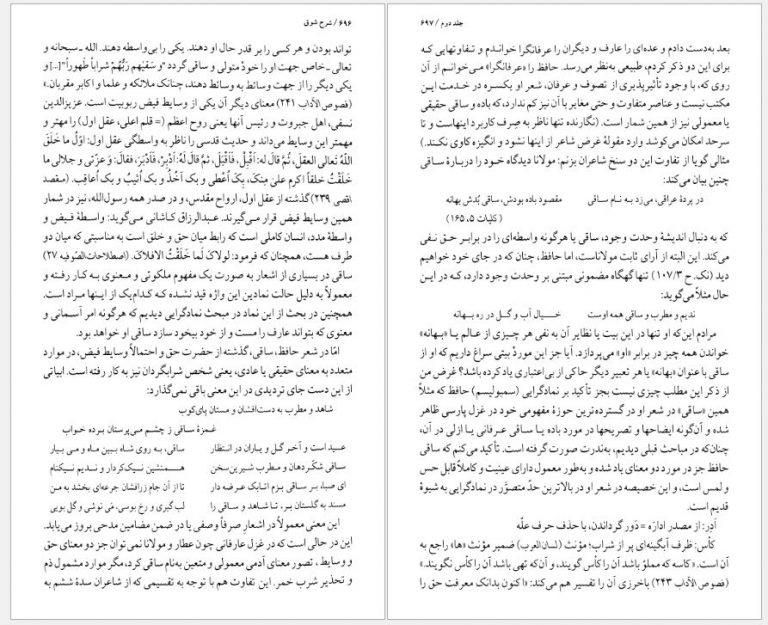 ۶۹۶ / شرح شوق
تواند بودن و هر کسی را بر قدر حال او دهند. یکی را بی‌واسطه دهند. الله ـ سبحانه و
تعالی ـ خاص جهت او را خودْ متولی و ساقی گردد "و سَقیٰهم رَبُّهُمْ شراباً طَهوراً" [...] و
یکی دیگر را از جهت وسائط به وسائط دهند، چنانک ملائکه و علما و اکابر مقربان.»
(فصوص الآداب ۲۴۱) معنای دیگر آن یکی از وسایط فیض ربوبیت است. عزیزالدین
نسفی، اهل جبروت و رئیس آنها یعنی روح اعظم (= قلم اعلی، عقل اول) را مهتر و
مهمتر این وسایط می‌داند و حدیث قدسی را ناظر به واسطگی عقل اول: اوّلُ ما خَلَقَ
اللهُ تَعالی العقلَ، ثُمَّ قالَ له: اَقْبِلْ، فَاَقْبَلَ، ثُمَّ قالَ لَهُ: اَدْبِرْ، فَاَدْبَرَ، فقالَ: وَ عزّتی و جلالی ما
خَلَقْتُ خلقاً اکرم علیَّ منکَ، بِکَ اُعْطی و بک آخُذُ و بک اُثیبُ و بک اُعاقِب. (مقصد
اقصی ۲۳۹) گذشته از عقل اول، ارواح مقدس، و در صدر همه رسول‌الله، نیز در شمار
همین وسایط فیض قرار می‌گیرند. عبدالرزاق کاشانی می‌گوید: واسطهٔ فیض و
واسطهٔ مدد، انسان کاملی است که رابط میان حق و خلق است به مناسبتی که میان دو
طرف هست، همچنان که فرمود: لولاکَ لَما خَلَقْتُ الافلاکَ. (اصطلاحات الصّوفیه ۲۷)
ساقی در بسیاری از اشعار به صورت یک مفهوم ملکوتی و معنوی به کار رفته و
معمولاً به دلیل حالت نمادین این واژه قید نشده که کدام‌یک از اینها مراد است.
همچنین در بحث از این نماد در مبحث نمادگرایی دیدیم که هرگونه امر آسمانی و
معنوی که بتواند عارف را مست و از خود بیخود سازد ساقی او خواهد بود.
امّا در شعر حافظ، ساقی، گذشته از حضرت حق و احتمالاً وسایط فیض، در موارد
متعدد به معنای حقیقی یا عادی، یعنی شخص شرابگردان نیز به کار رفته است. ابیاتی
از این دست جای تردیدی در این معنی باقی نمی‌گذارد:
شاهد و مطرب به دست‌افشان و مستان پای‌کوب
غمزهٔ ساقی ز چشم می‌پرستان برده خواب
عید است و آخر گل و یاران در انتظار ساقی، به روی شاه ببین ماه و می بیار
ساقی شکّردهان و مطرب شیرین‌سخن همنشین نیک‌کردار و ندیم نیکنام
ای صبا، بر ساقی بزم اتابک عرضه دار تا از آن جام زرافشان جرعه‌ای بخشد به من
مسند به گلستان بر، تا شاهد و ساقی را لب گیری و رخ بوسی، می نوشی و گل بویی
این معنی معمولاً در اشعارِ صرفاً وصفی یا در ضمن مضامین مدحی بروز می‌یابد.
این در حالی است که در غزل عارفانی چون عطار و مولانا نمی‌توان جز دو معنای حق
و وسایط، تصور معنای آدمی معمولی و متعین به‌نام ساقی کرد، مگر موارد مشمول ذم
و تحذیر شرب خمر. این تفاوت هم با توجه به تقسیمی که از شاعران سدهٔ ششم به
جلد دوم / ۶۹۷
بعد به‌دست دادم و عده‌ای را عارف و دیگران را عرفانگرا خواندم و تفاوتهایی که
برای این دو ذکر کردم، طبیعی به‌نظر می‌رسد. حافظ را «عرفانگرا» می‌خوانم از آن
روی که، با وجود تأثیرپذیری از تصوف و عرفان، شعر او یکسره در خدمت این
مکتب نیست و عناصر متفاوت و حتی مغایر با آن نیز کم ندارد، که باده و ساقی حقیقی
یا معمولی نیز از همین شمار است. (نگارنده تنها ناظر به صِرف کاربرد اینهاست و تا
سرحد امکان می‌کوشد وارد مقولهٔ غرض شاعر از اینها نشود و انگیزه کاوی نکند.)
مثالی گویا از تفاوت این دو سنخ شاعران بزنم: مولانا دیدگاه خود را دربارهٔ ساقی
چنین بیان می‌کند:
در پردهٔ عراقی، می‌زد به نام ساقی مقصود باده بودش، ساقی بُدش بهانه
(کلیات ۵، ۱۶۵)
که به دنبال اندیشهٔ وحدت وجود، ساقی یا هرگونه واسطه‌ای را در برابر حق نفی
می‌کند. این البته از آرای ثابت مولاناست، اما حافظ، چنان که در جای خود خواهیم
دید (نک. ح ۱۰۷/۳) تنها گهگاه مضمونی مبتنی بر وحدت وجود دارد، که در این
حال مثلاً می‌گوید:
ندیم و مطرب و ساقی همه اوست خیال آب و گل در ره بهانه
مرادم این‌که او تنها در این بیت یا نظایر آن به نفی هر چیزی از عالم یا «بهانه»
خواندن همه چیز در برابر «او» می‌پردازد. آیا جز این موردْ بیتی سراغ داریم که او از
ساقی با عنوان «بهانه» یا هر تعبیر دیگر حاکی از بی‌اعتباری یاد کرده باشد؟ غرض من
از ذکر این مطلب چیزی نیست بجز تأکید بر نمادگرایی (سمبولیسم) حافظ که مثلاً
همین «ساقی» در شعر او در گسترده‌ترین حوزهٔ مفهومی خود در غزل پارسی ظاهر
شده و آن‌گونه ایضاحها و تصریحها در مورد باده یا ساقی عرفانی یا ازلی در آن،
چنان‌که در مباحث قبلی دیدیم، به‌ندرت صورت گرفته است. تأکید می‌کنم که ساقی
حافظ جز در مورد دو معنای یاد شده و به‌طور معمول دارای عینیت و کاملاً قابل حس
و لمس است، و این خصیصه در شعر او در بالاترین حدّ متصوَّر در نمادگرایی به شیوهٔ
قدیم است.
اَدِر: از مصدر اِدارَه = دَور گرداندن، با حذف حرف علّه
کأس: ظرف آبگینه‌ای پر از شراب؛ مؤنث (لسان‌العرب) ضمیر مؤنث «ها» راجع به
آن است. «کاسه که مملوّ باشد آن را کأس گویند، و آن‌که تهی باشد آن را کأس نگویند.»
(فصوص الآداب ۲۴۳) باخرزی آن را تفسیر هم می‌کند: «اکنون بدانک معرفت حق را